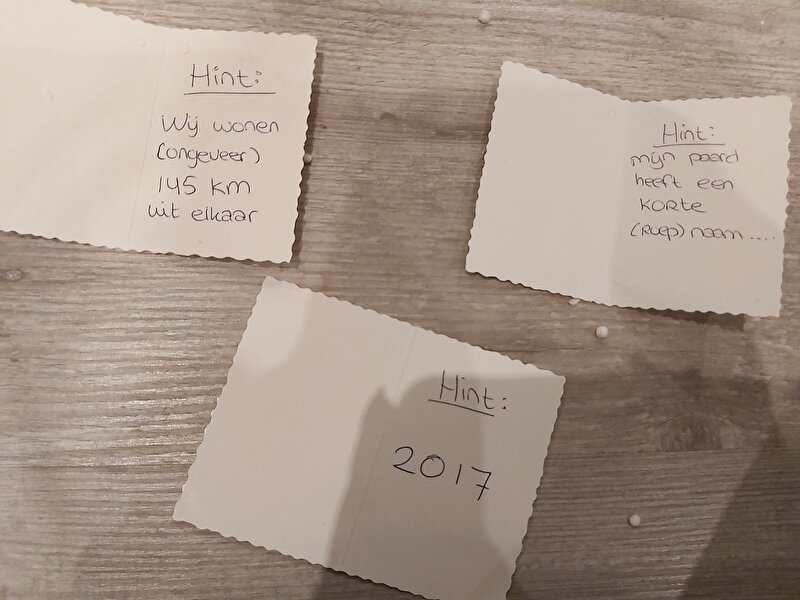 Hint:
Wij wonen
(ongeveer)
145 km
uit elkaar
Hint:
mijn paard
heeft een
KORTE
(Roep) naam ....
Hint:
2017